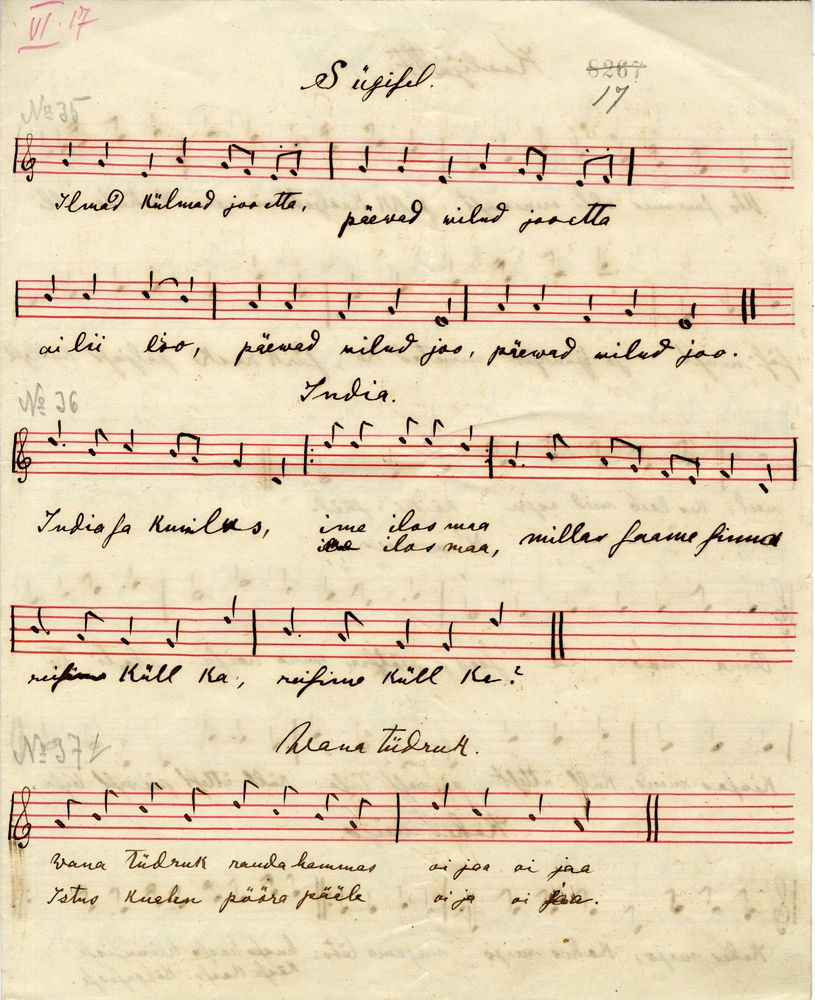 VI. 17
Sügisel.
8267
17
№ 35
Ilmad külmad joo etta, päewad wilud joo etta
ai lii löo, päewad wilud joo, päewad wilud joo.
India.
№ 36
Indiasa kuulus, ime ilos maa
ilos maa, millas saame sinna
reisime küll ka, reisime küll ke?
Wana tüdruk.
№ 37
Wana tüdruk rauda hammas oi jaa oi jaa
Istus kuelen pööra pääle oi ja oi jaa.